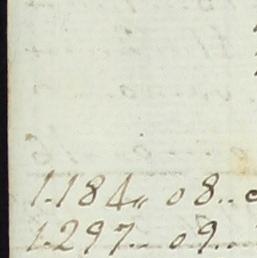 1.184,, 08..
1.297.. 09..